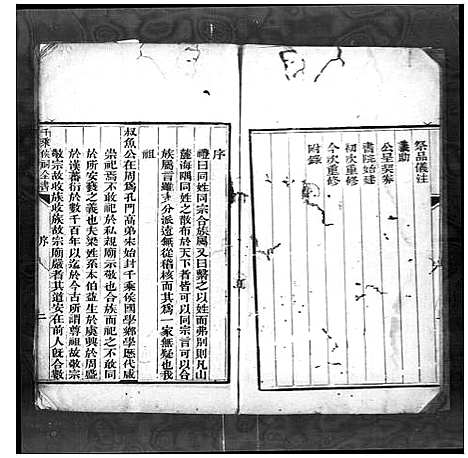 祭品儀注
襄助
公呈契券
書院始建
初次重修
今次重修
附錄
序
禮曰同姓同宗合族屬又曰繫之以姓而弗別則凡山
陬海隅同姓之散布於天下者皆可以同宗言可以合
族屬言雖分派遠無從稽核而其為一家無疑也我
祖
叔魚公在周為孔門高弟宋始封千乘侯國學鄉學歷代咸
崇祀焉不敢於私視廟示也合族而祀之不敢同
於所安褻之義也夫梁姓系本伯益生於虞興於周盛
於漢蕃衍於數千百年以迄於今古所謂尊祖故敬宗
敬宗故收族收族故宗廟嚴者其道安在前人既合數
千乘侯祠全書
序